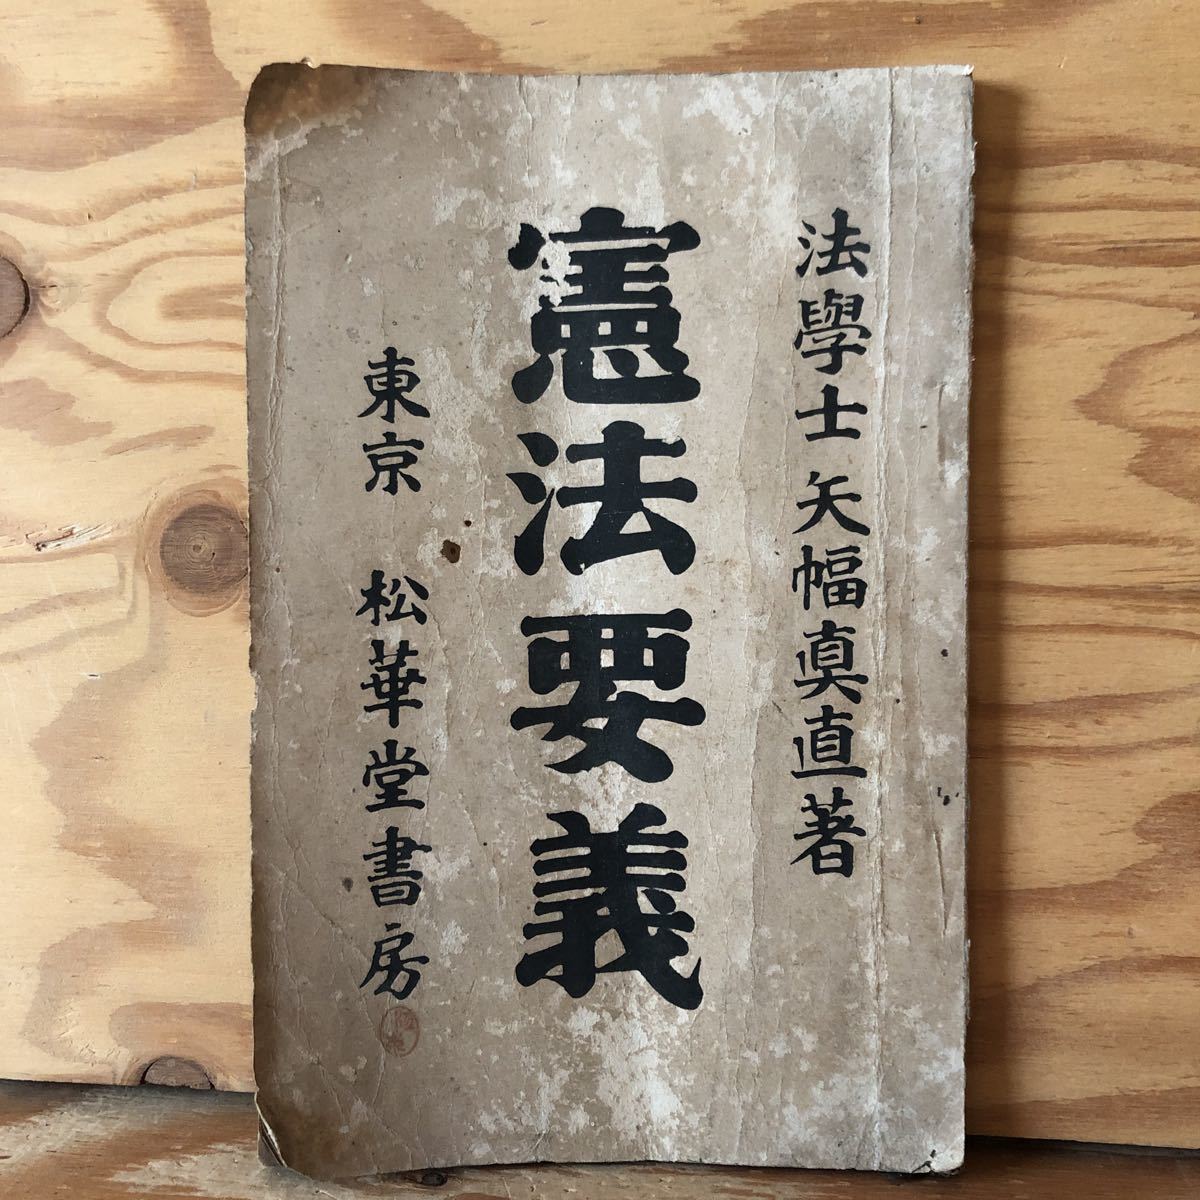 法學士 矢幅眞直著
憲法要義
東京 松華堂書房